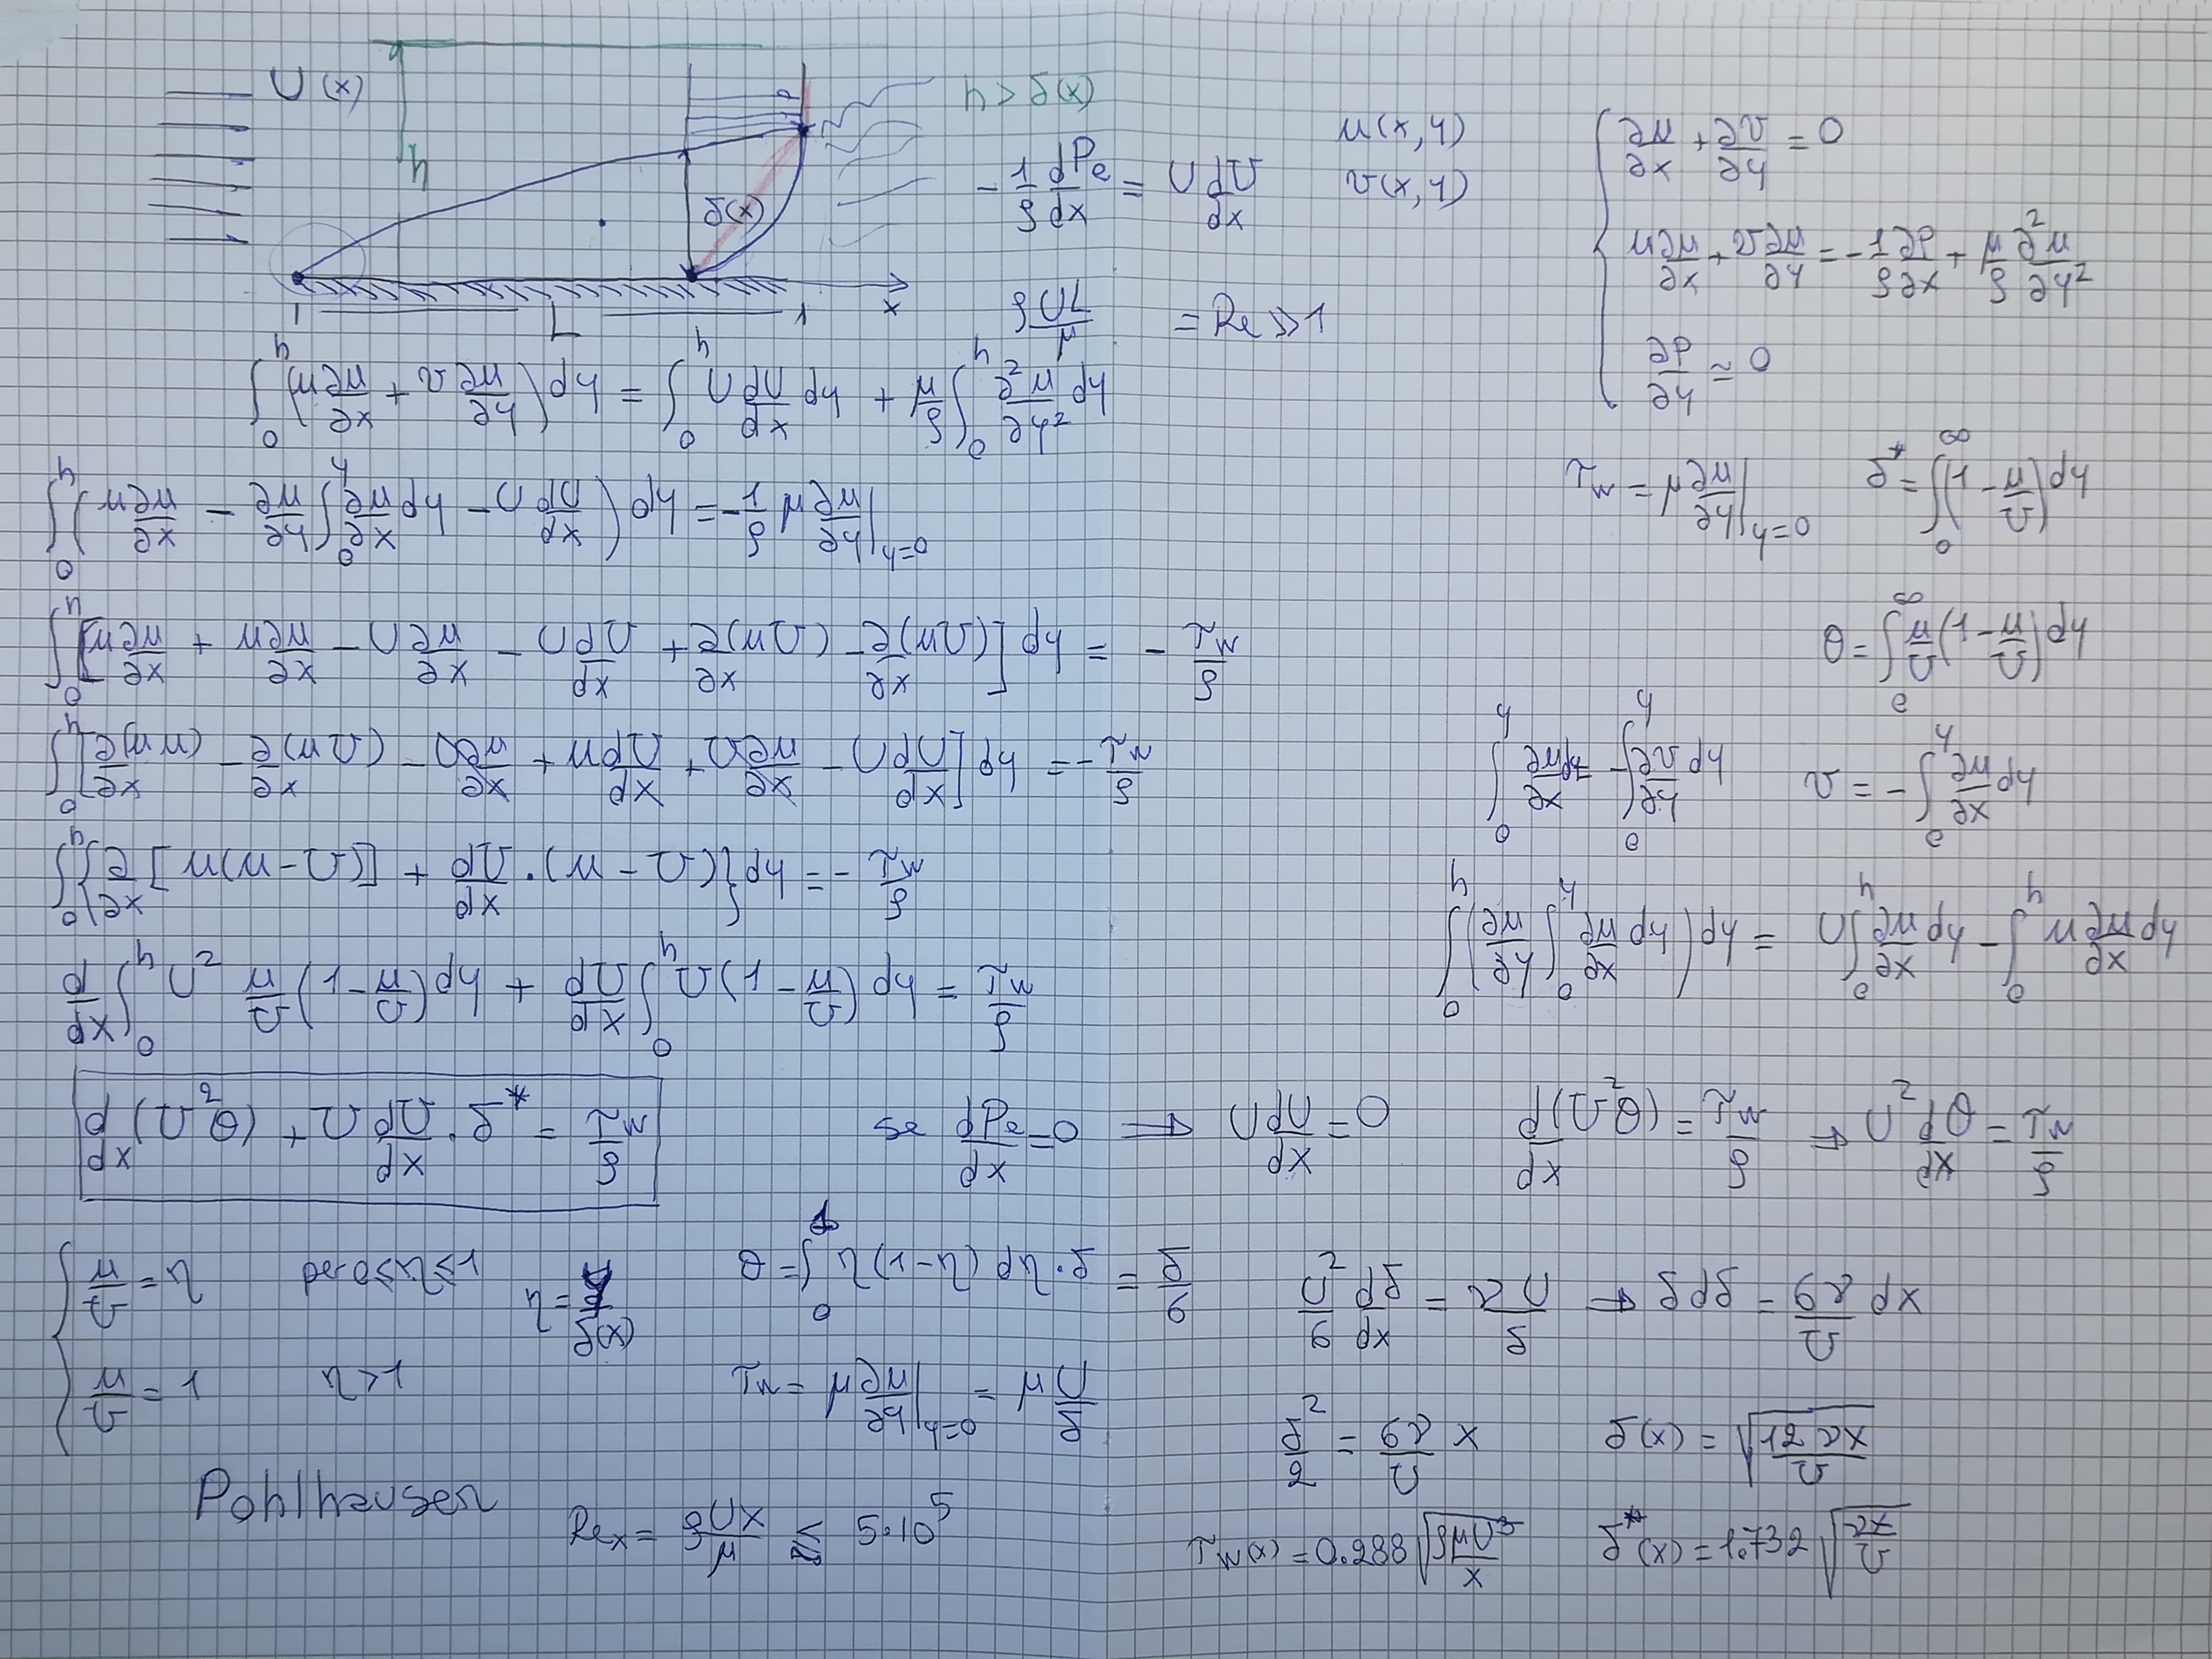 U(x)
h
δ(x)
x
L
h > δ(x)
-1/ρ dPe/dx = U dU/dx
u(x,y)
v(x,y)
∂u/∂x + ∂v/∂y = 0
u ∂u/∂x + v ∂u/∂y = -1/ρ ∂P/∂x + μ/ρ ∂²u/∂y²
∂P/∂y ≃ 0
ρUL/μ = Re >> 1
∫₀^h (u ∂u/∂x + v ∂u/∂y) dy = ∫₀^h U dU/dx dy + μ/ρ ∫₀^h ∂²u/∂y² dy
τw = μ ∂u/∂y |y=0
δ* = ∫₀^∞ (1 - u/U) dy
∫₀^h (u ∂u/∂x - ∂u/∂y ∫₀^y ∂u/∂x dy - U dU/dx) dy = -1/ρ μ ∂u/∂y |y=0
θ = ∫₀^∞ u/U (1 - u/U) dy
∫₀^h [u ∂u/∂x + u ∂u/∂x - U ∂u/∂x - U dU/dx + ∂(uU)/∂x - ∂(uU)/∂x] dy = - τw/ρ
∫₀^h [∂(uu)/∂x - ∂(uU)/∂x - U ∂u/∂x + u dU/dx + U ∂u/∂x - U dU/dx] dy = - τw/ρ
∫₀^y ∂u/∂x dy = - ∫₀^y ∂v/∂y dy
v = - ∫₀^y ∂u/∂x dy
∫₀^h {∂/∂x [u(u-U)] + dU/dx · (u - U)} dy = - τw/ρ
∫₀^h (∂u/∂y ∫₀^y ∂u/∂x dy) dy = U ∫₀^h ∂u/∂x dy - ∫₀^h u ∂u/∂x dy
d/dx ∫₀^h U² u/U (1 - u/U) dy + dU/dx ∫₀^h U (1 - u/U) dy = τw/ρ
d/dx (U²θ) + U dU/dx · δ* = τw/ρ
se dPe/dx = 0 ⇒ U dU/dx = 0
d(U²θ)/dx = τw/ρ ⇒ U² dθ/dx = τw/ρ
u/U = η per 0≤η≤1
η = y/δ(x)
u/U = 1 η>1
θ = ∫₀^1 η(1-η) dη·δ = δ/6
τw = μ ∂u/∂y |y=0 = μ U/δ
U²/6 dδ/dx = ν U/δ ⇒ δ dδ = 6ν/U dx
δ²/2 = 6ν/U x
δ(x) = √(12νx/U)
Pohlhausen
Rex = ρUx/μ ≲ 5·10⁵
τw(x) = 0.288 √(ρμU³/x)
δ*(x) = 1.732 √(νx/U)